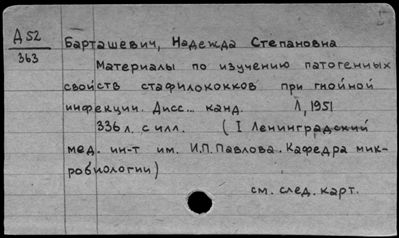 Д 52
363
Барташевич, Надежда Степановна
Материалы по изучению патогенных
свойств стафилококков при гнойной
инфекции. Дисс... канд. Л, 1951
336 л. с илл. (I Ленинградский
мед. ин-т им. И.П. Павлова. Кафедра мик-
робиологии)
см. след. карт.